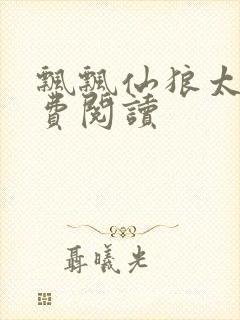 飄飄仙狼太
費閱讀
聶曦光